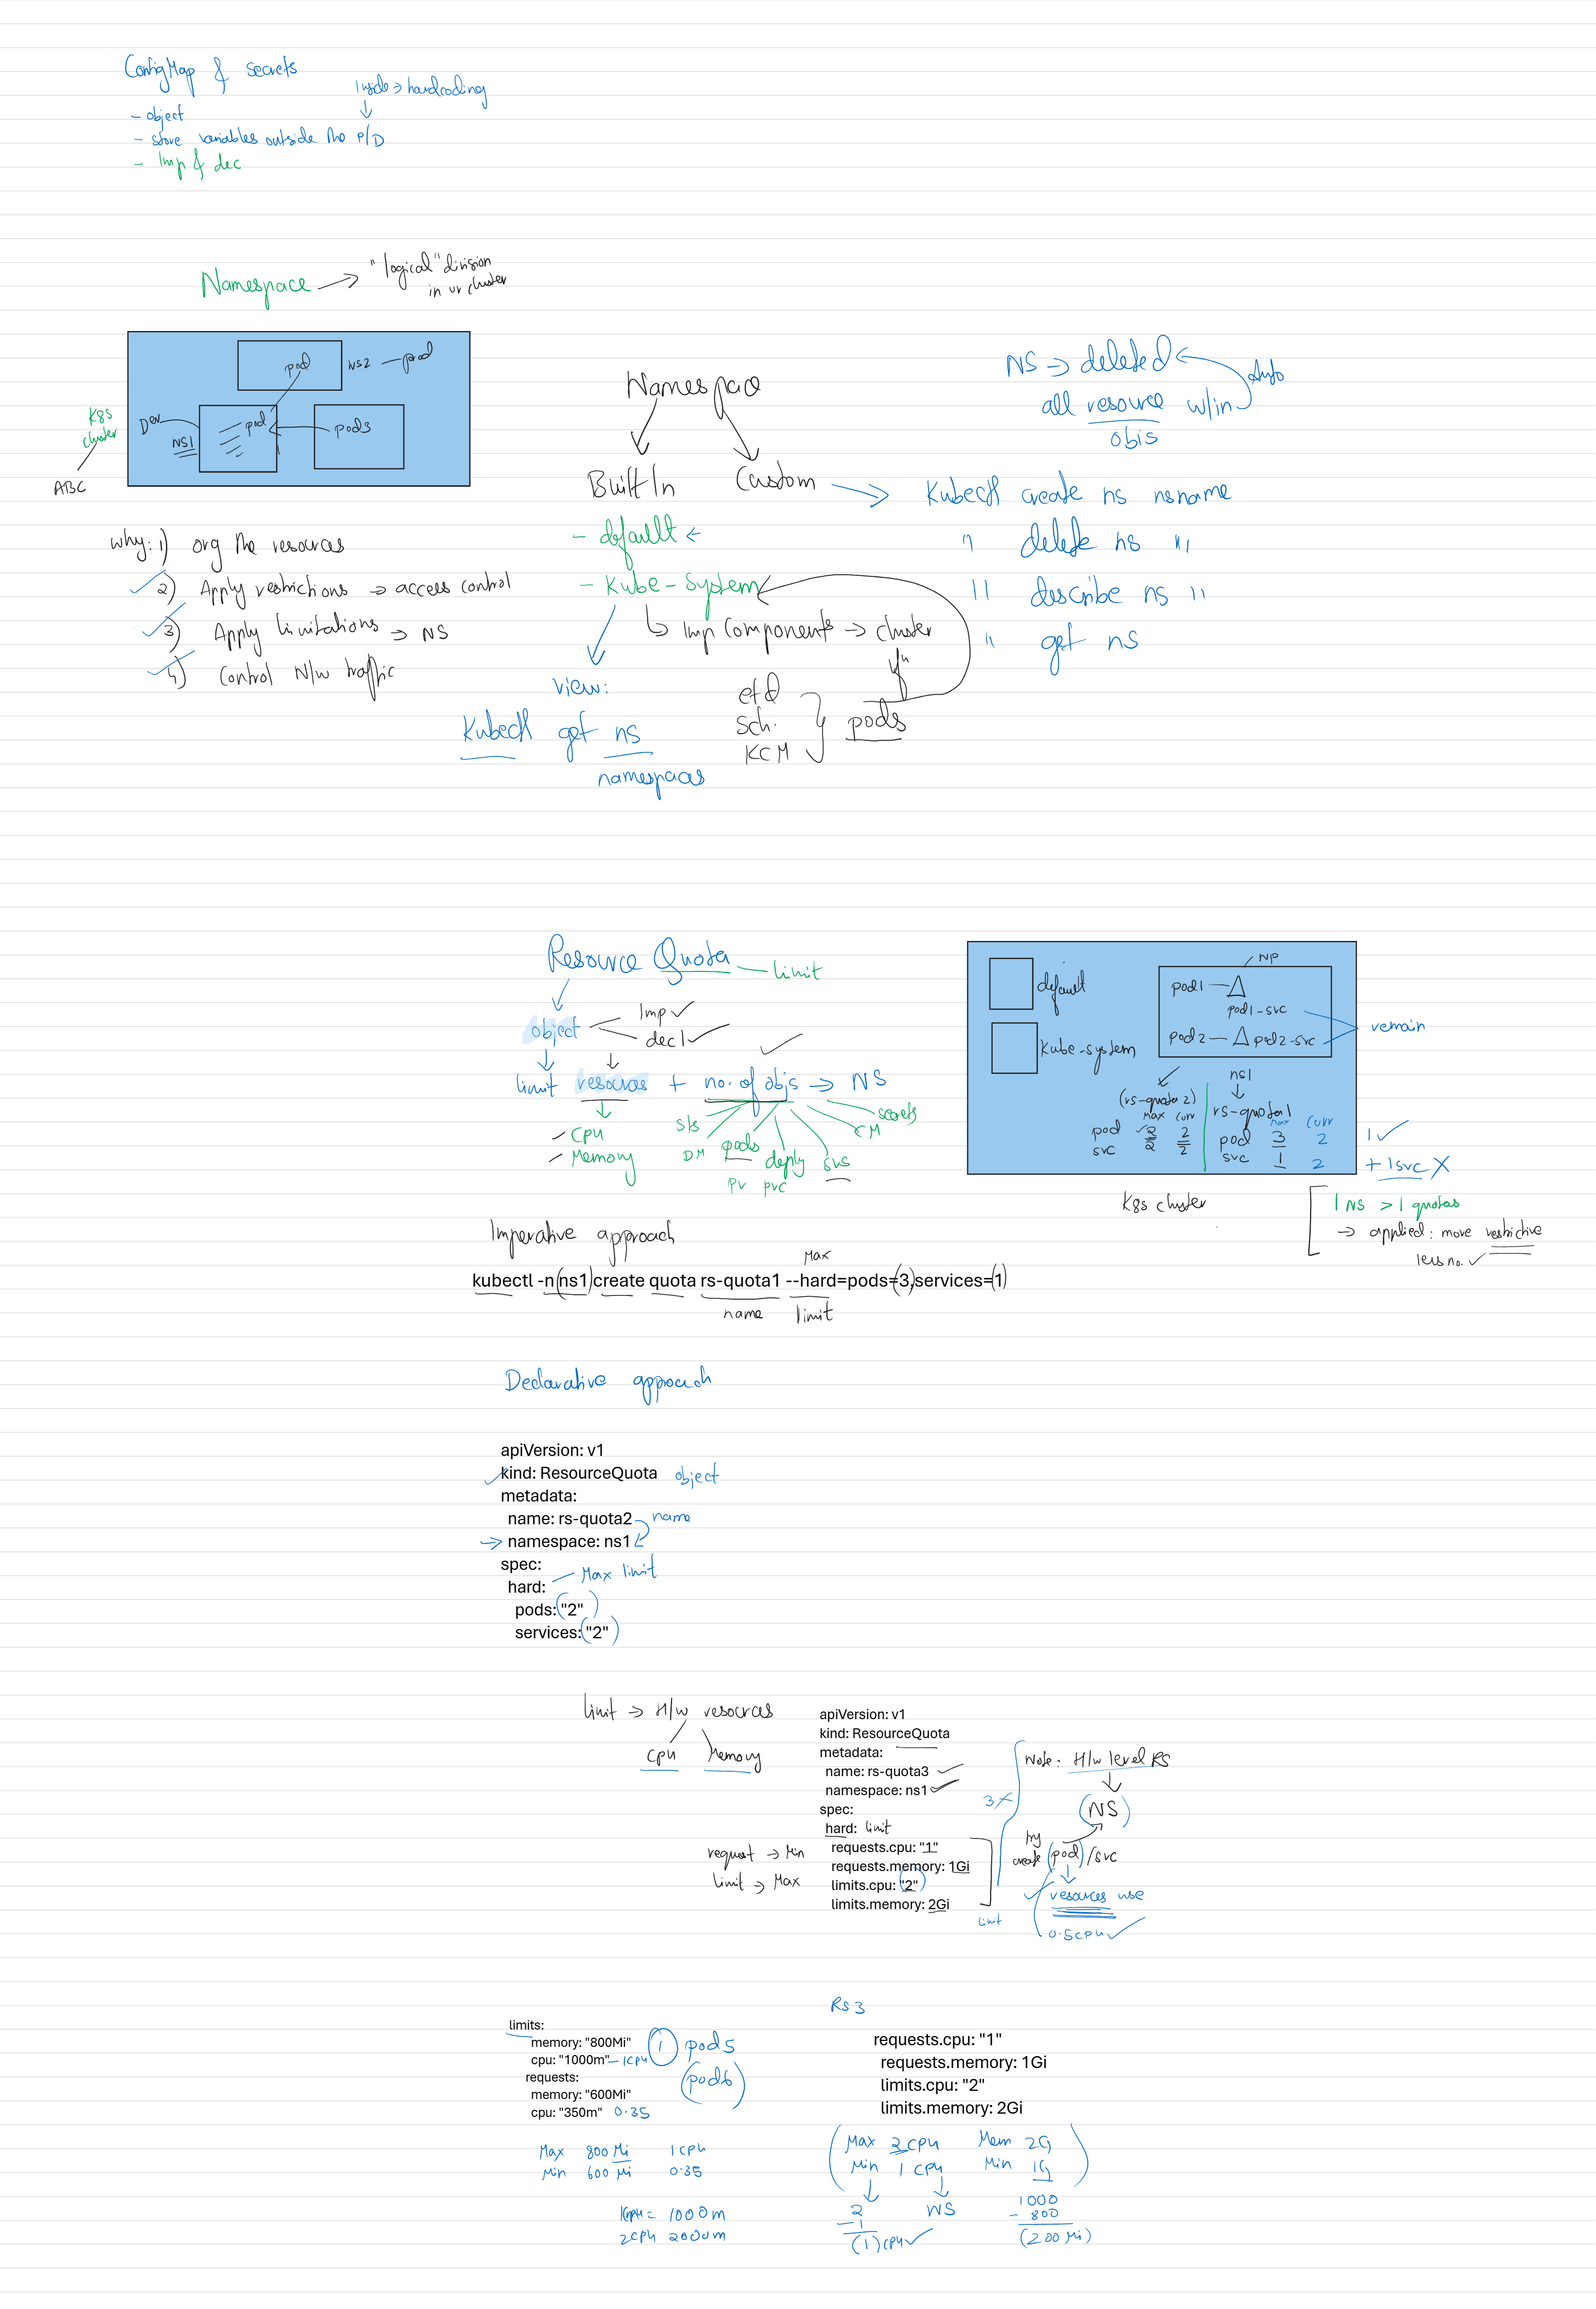 ConfigMap & secrets
Inside → hardcoding
- object
- store variables outside the P/D
- Imp & dec
Namespace → "logical" division
in ur cluster
pod
NS2 - prod
K8s
cluster
Dev
NS1
pod
pods
ABC
why: 1) org the resources
2) Apply restrictions → access control
3) Apply limitations → NS
4) Control N/w traffic
Namespace
Built In
Custom
- default ←
- Kube-System
↳ Imp Components → cluster
view:
Kubectl get ns
namespaces
etcd
sch.
KCM
pods
NS → deleted
Auto
all resource w/in
objs
Kubectl create ns nsname
" delete ns "
" describe ns "
" get ns
Resource Quota - limit
object
Imp ✓
decl ✓
limit resources + no. of objs → NS
CPU
Memory
sts
DM
pods
PV
deploy
pvc
svs
CM
secrets
default
Kube-system
NP
pod1
pod1-svc
pod2
pod2-svc
remain
ns1
(rs-quota2)
Max Curr
pod 2 2
svc 2 2
rs-quota1
Max Curr
pod 3 2
svc 1 2
1 ✓
+ 1svc X
K8s cluster
1 NS > 1 quotas
→ applied: more restrictive
less no. ✓
Imperative approach
Max
kubectl -n ns1 create quota rs-quota1 --hard=pods=3,services=1
name
limit
Declarative approach
apiVersion: v1
kind: ResourceQuota object
metadata:
name: rs-quota2 name
→ namespace: ns1
spec:
hard: - Max limit
pods: "2"
services: "2"
limit → H/w resources
CPU
Memory
request → Min
limit → Max
apiVersion: v1
kind: ResourceQuota
metadata:
name: rs-quota3
namespace: ns1
spec:
hard: limit
requests.cpu: "1"
requests.memory: 1Gi
limits.cpu: "2"
limits.memory: 2Gi
limit
Note: H/w level RS
(NS)
try
create (pod)/svc
resources use
0.5cpu ✓
limits:
memory: "800Mi"
cpu: "1000m" - 1CPU
requests:
memory: "600Mi"
cpu: "350m" 0.35
1 pod5
(pod6)
Max 800 Mi 1 CPU
Min 600 Mi 0.35
1CPU = 1000m
2CPU 2000m
RS 3
requests.cpu: "1"
requests.memory: 1Gi
limits.cpu: "2"
limits.memory: 2Gi
Max 2 CPU Mem 2G
Min 1 CPU Min 1G
2
- 1
(1) CPU ✓
NS
1000
- 800
(200 Mi)